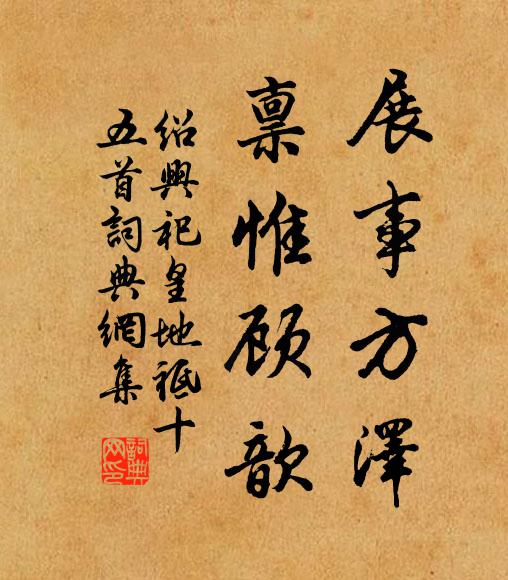 展事方澤
禀惟顾歆
紹興祀皇地祗十
五首詞典網集
詞典
网印